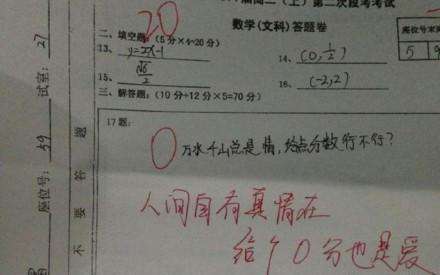 高二（上）第二次段考考试
数学(文科)答题卷
座位号末
5 9
20
二、填空题：(5分×4=20分)
13、 y=2x-1
14、 (0,1/2)
15、 √6/2
16、 (-2,2)
三、解答题：(10分+12分×5=70分)
17题:
0
万水千山总是情，给点分数行不行？
人间自有真情在
给个0分也是爱
试室: 27
座位号: 59
不要答题